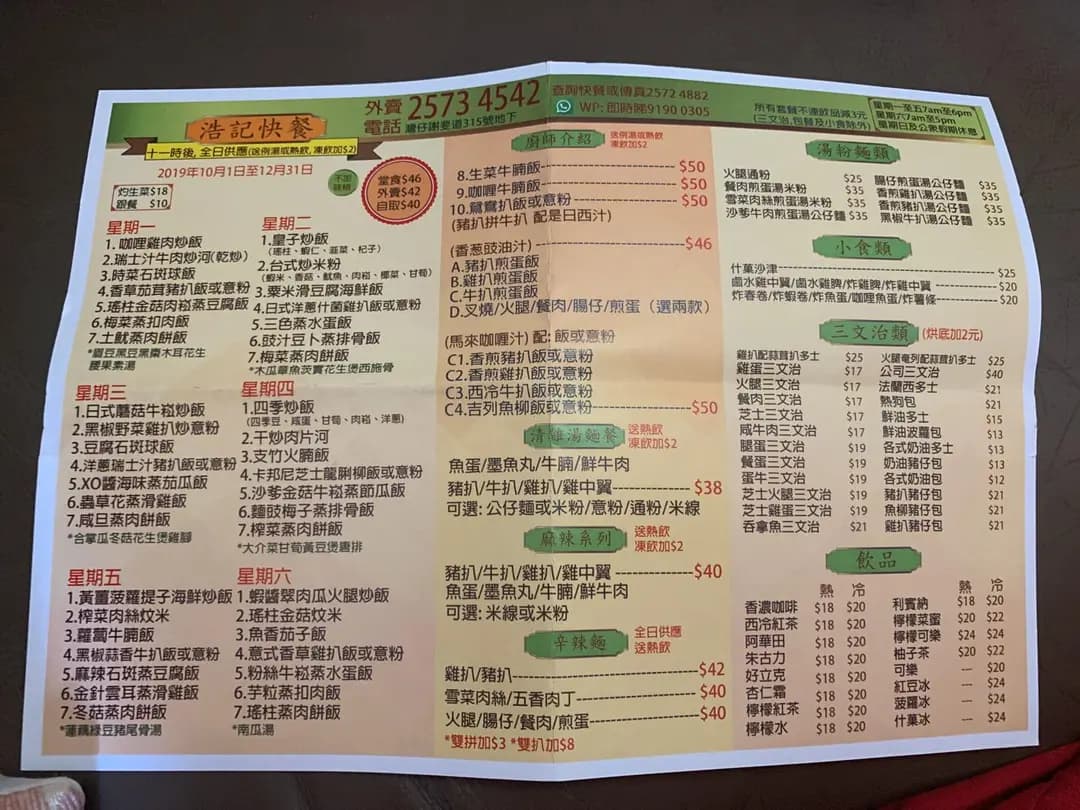 外賣電話 2573 4542
灣仔謝斐道315號地下
查詢快餐或傳真2572 4882
WP: 即時睇9190 0305
所有套餐不連飲品減3元
(三文治,包餐及小食除外)
星期一至五7am至6pm
星期六7am至5pm
星期日及公衆假期休息
浩記快餐
十一時後, 全日供應(送例湯或熱飲, 凍飲加$2)
2019年10月1日至12月31日
不加味精
堂食$46
外賣$42
自取$40
灼生菜$18
跟餐 $10
星期一
1.咖喱雞肉炒飯
2.瑞士汁牛肉炒河(乾炒)
3.時菜石斑球飯
4.香草茄茸豬扒飯或意粉
5.瑤柱金菇肉崧蒸豆腐飯
6.梅菜蒸扣肉飯
7.土魷蒸肉餅飯
*眉豆黑豆黑棗木耳花生
腰果素湯
星期二
1.皇子炒飯
(瑤柱、蝦仁、韮菜、杞子)
2.台式炒米粉
(蝦米、香菇、魷魚、肉崧、椰菜、甘荀)
3.粟米滑豆腐海鮮飯
4.日式洋蔥什菌雞扒飯或意粉
5.三色蒸水蛋飯
6.豉汁豆卜蒸排骨飯
7.梅菜蒸肉餅飯
*木瓜章魚茨實花生煲西施骨
星期三
1.日式蘑菇牛崧炒飯
2.黑椒野菜雞扒炒意粉
3.豆腐石斑球飯
4.洋蔥瑞士汁豬扒飯或意粉
5.XO醬海味蒸茄瓜飯
6.蟲草花蒸滑雞飯
7.咸旦蒸肉餅飯
*合掌瓜冬菇花生煲雞腳
星期四
1.四季炒飯
(四季豆、咸蛋、甘荀、肉崧、洋蔥)
2.干炒肉片河
3.支竹火腩飯
4.卡邦尼芝士龍脷柳飯或意粉
5.沙爹金菇牛崧蒸節瓜飯
6.麵豉梅子蒸排骨飯
7.榨菜蒸肉餅飯
*大介菜甘荀黃豆煲唐排
星期五
1.黃薑菠蘿提子海鮮炒飯
2.榨菜肉絲炆米
3.蘿蔔牛腩飯
4.黑椒蒜香牛扒飯或意粉
5.麻辣石斑蒸豆腐飯
6.金針雲耳蒸滑雞飯
7.冬菇蒸肉餅飯
*蓮藕綠豆豬尾骨湯
星期六
1.蝦醬翠肉瓜火腿炒飯
2.瑤柱金菇炆米
3.魚香茄子飯
4.意式香草雞扒飯或意粉
5.粉絲牛崧蒸水蛋飯
6.芋粒蒸扣肉飯
7.瑤柱蒸肉餅飯
*南瓜湯
廚師介紹
送例湯或熱飲
凍飲加$2
8.生菜牛腩飯 $50
9.咖喱牛腩飯 $50
10.鴛鴦扒飯或意粉 $50
(豬扒拼牛扒 配是日西汁)
(香葱豉油汁) $46
A.豬扒煎蛋飯
B.雞扒煎蛋飯
C.牛扒煎蛋飯
D.叉燒/火腿/餐肉/腸仔/煎蛋（選兩款）
(馬來咖喱汁) 配: 飯或意粉
C1.香煎豬扒飯或意粉
C2.香煎雞扒飯或意粉
C3.西冷牛扒飯或意粉
C4.吉列魚柳飯或意粉 $50
清雞湯麵餐
送熱飲
凍飲加$2
魚蛋/墨魚丸/牛腩/鮮牛肉
豬扒/牛扒/雞扒/雞中翼 $38
可選: 公仔麵或米粉/意粉/通粉/米線
麻辣系列
送熱飲
凍飲加$2
豬扒/牛扒/雞扒/雞中翼 $40
魚蛋/墨魚丸/牛腩/鮮牛肉
可選: 米線或米粉
辛辣麵
全日供應
送熱飲
雞扒/豬扒 $42
雪菜肉絲/五香肉丁 $40
火腿/腸仔/餐肉/煎蛋 $40
*雙拼加$3 *雙扒加$8
湯粉麵類
火腿通粉 $25
餐肉煎蛋湯米粉 $35
雪菜肉絲煎蛋湯米粉 $35
沙爹牛肉煎蛋湯公仔麵 $35
腸仔煎蛋湯公仔麵 $35
香煎雞扒湯公仔麵 $35
香煎豬扒湯公仔麵 $35
黑椒牛扒湯公仔麵 $35
小食類
什菓沙津 $25
鹵水雞中翼/鹵水雞脾/炸雞脾/炸雞中翼 $20
炸春卷/炸蝦卷/炸魚蛋/咖喱魚蛋/炸薯條 $20
三文治類 (烘底加2元)
雞扒配蒜茸扒多士 $25
雞蛋三文治 $17
火腿三文治 $17
餐肉三文治 $17
芝士三文治 $17
咸牛肉三文治 $17
腿蛋三文治 $19
餐蛋三文治 $19
蛋牛三文治 $19
芝士火腿三文治 $21
芝士雞蛋三文治 $19
吞拿魚三文治 $21
火腿奄列配蒜茸扒多士 $25
公司三文治 $40
法蘭西多士 $21
熱狗包 $21
鮮油多士 $15
鮮油菠蘿包 $13
各式奶油多士 $13
奶油豬仔包 $13
各式奶油包 $12
豬扒豬仔包 $21
魚柳豬仔包 $21
雞扒豬仔包 $21
飲品
熱 冷
香濃咖啡 $18 $20
西冷紅茶 $18 $20
阿華田 $18 $20
朱古力 $18 $20
好立克 $18 $20
杏仁霜 $18 $20
檸檬紅茶 $18 $20
檸檬水 $18 $20
熱 冷
利賓納 $18 $20
檸檬菜蜜 $20 $22
檸檬可樂 $24 $24
柚子茶 $20 $22
可樂 --- $20
紅豆冰 --- $24
菠蘿冰 --- $24
什菓冰 --- $24